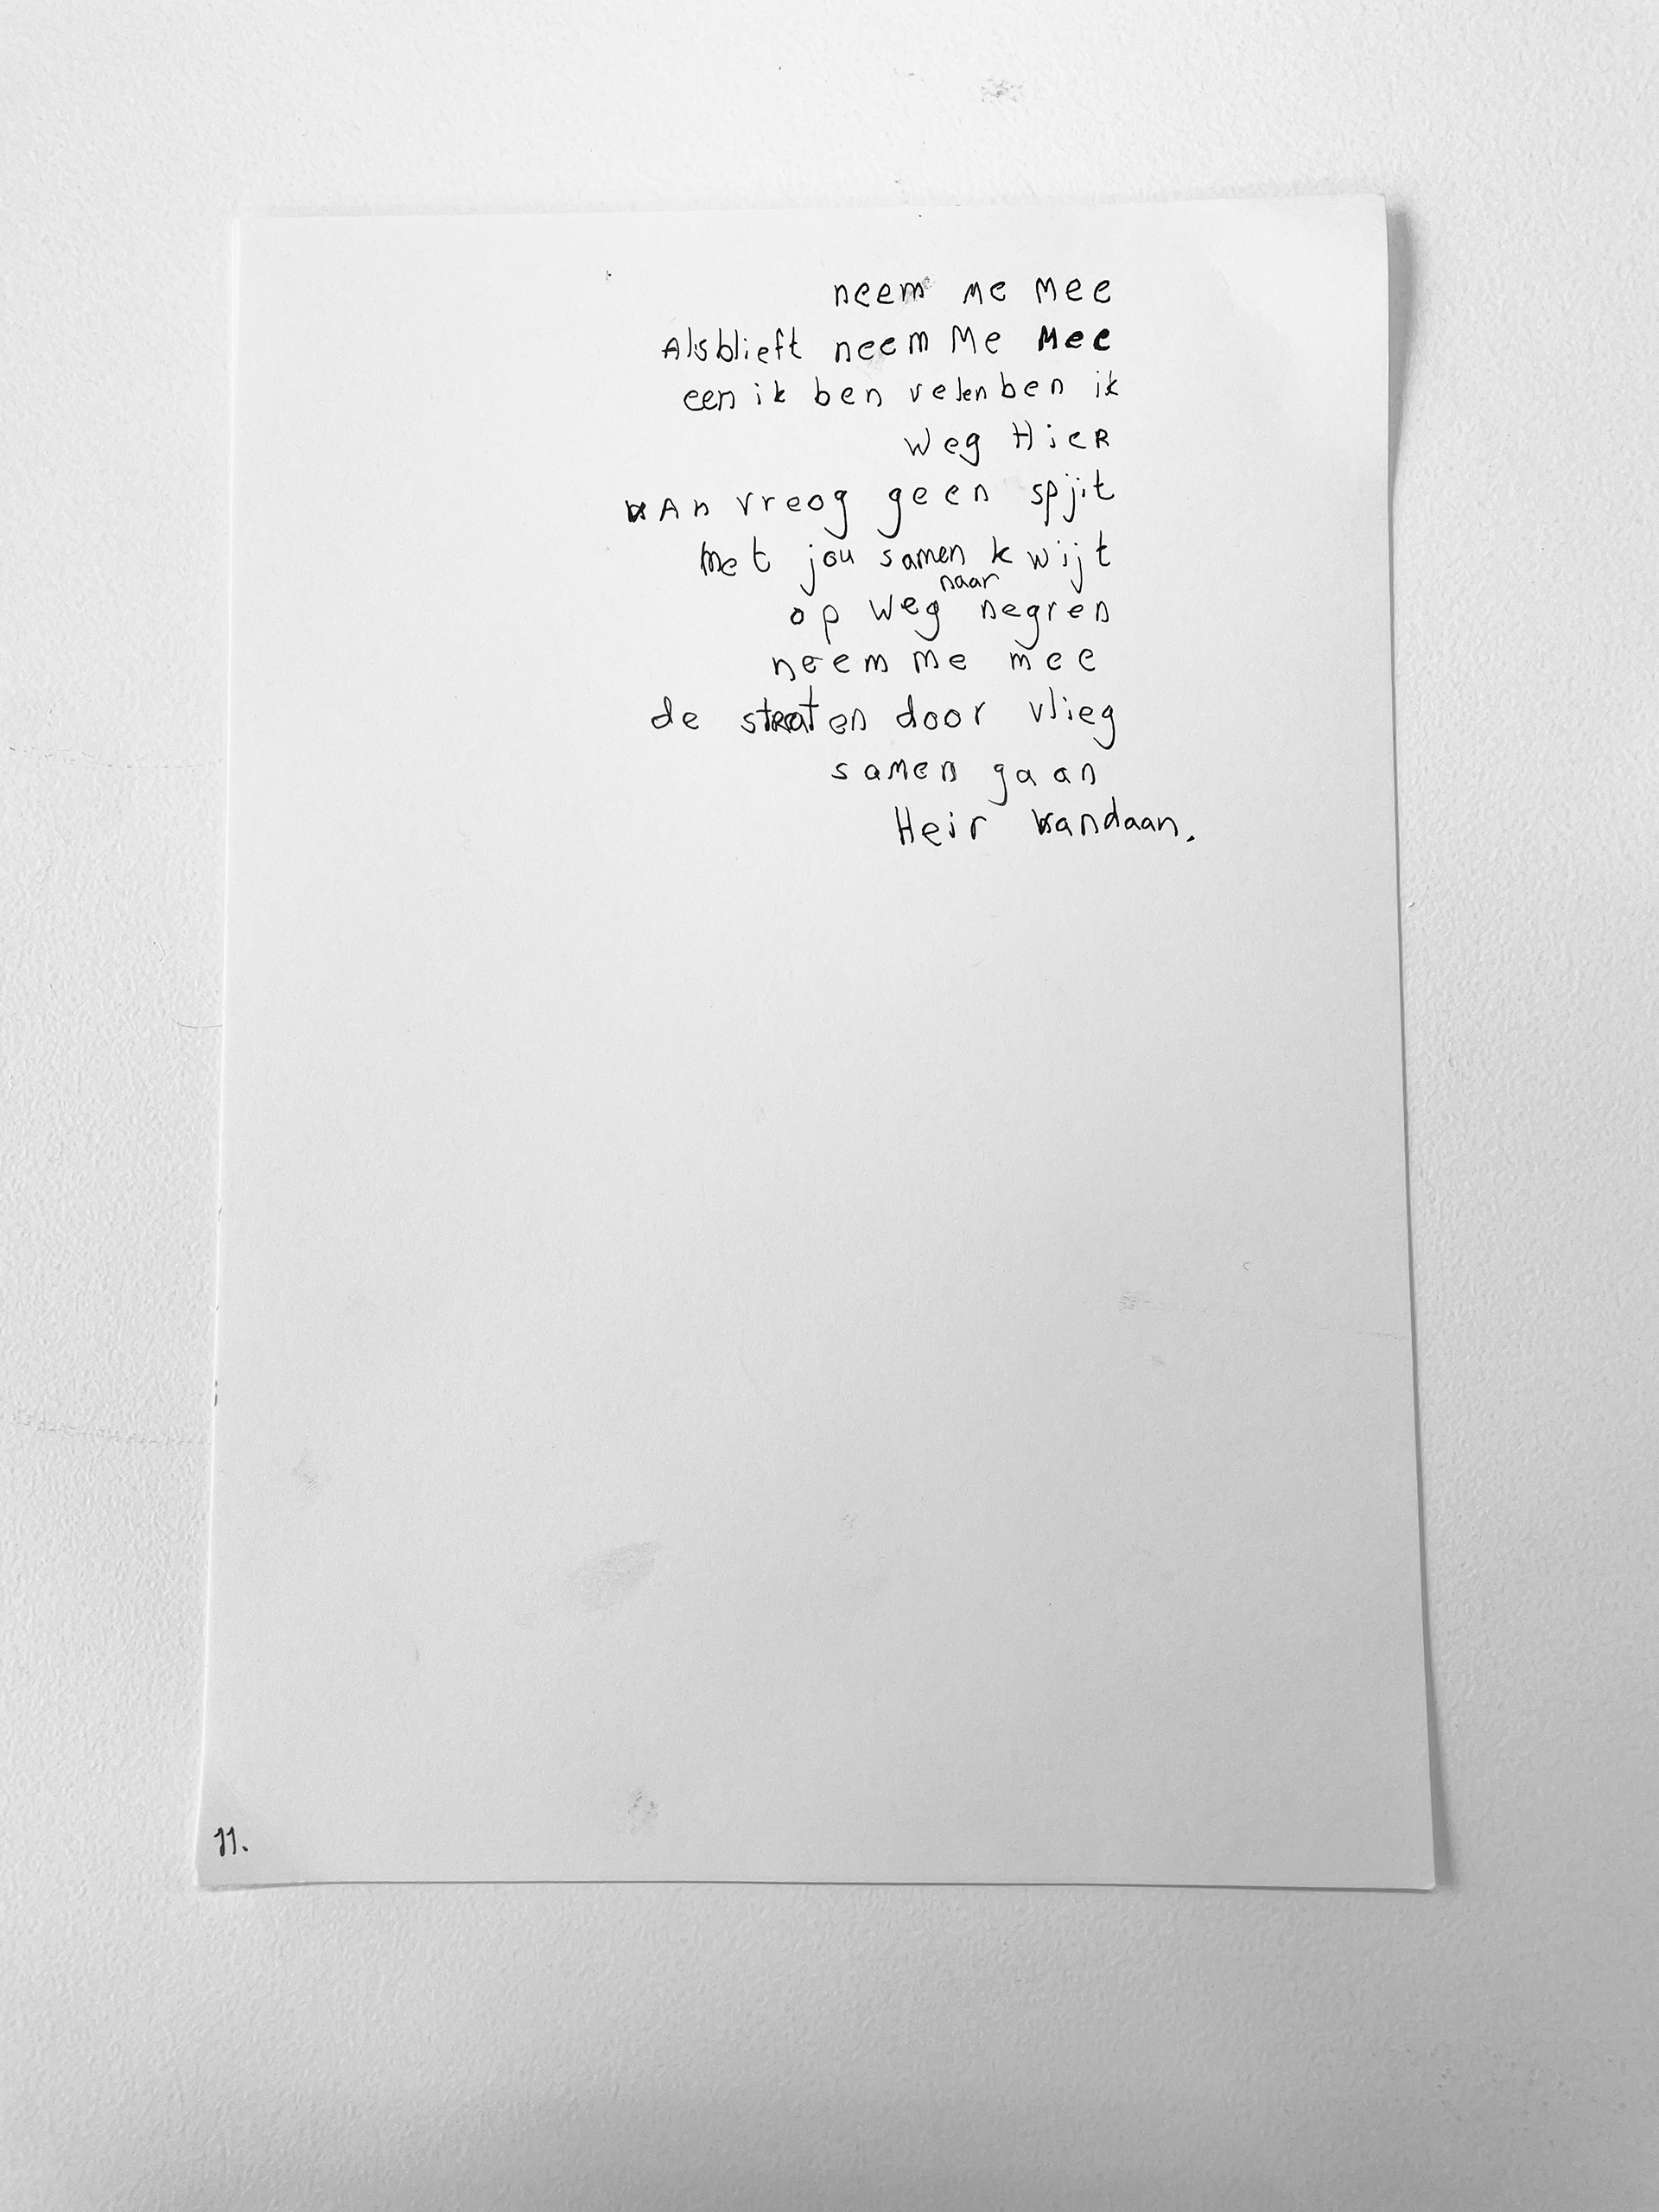 neem me mee
Alsblieft neem Me Mee
een ik ben velen ben ik
weg HieR
vAn vreog geen spjit
Met jou samen kwijt
op weg naar negren
neem me mee
de straten door vlieg
samen gaan
Heir vandaan.
11.